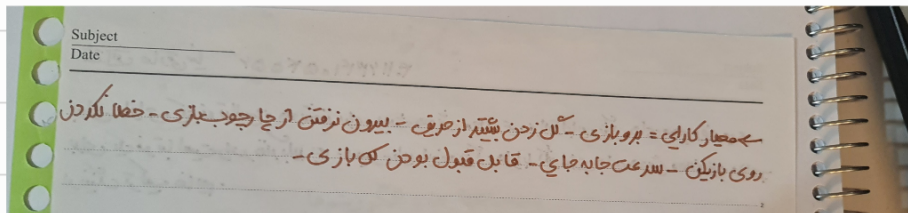 Subject
Date
← معیار کارایی = برد بازی - گل زدن بیشتر از حریف - بیرون نرفتن از چارچوب بازی - خطا نکردن
روی بازیکن - سرعت جابه جایی - قابل قبول بودن کل بازی -